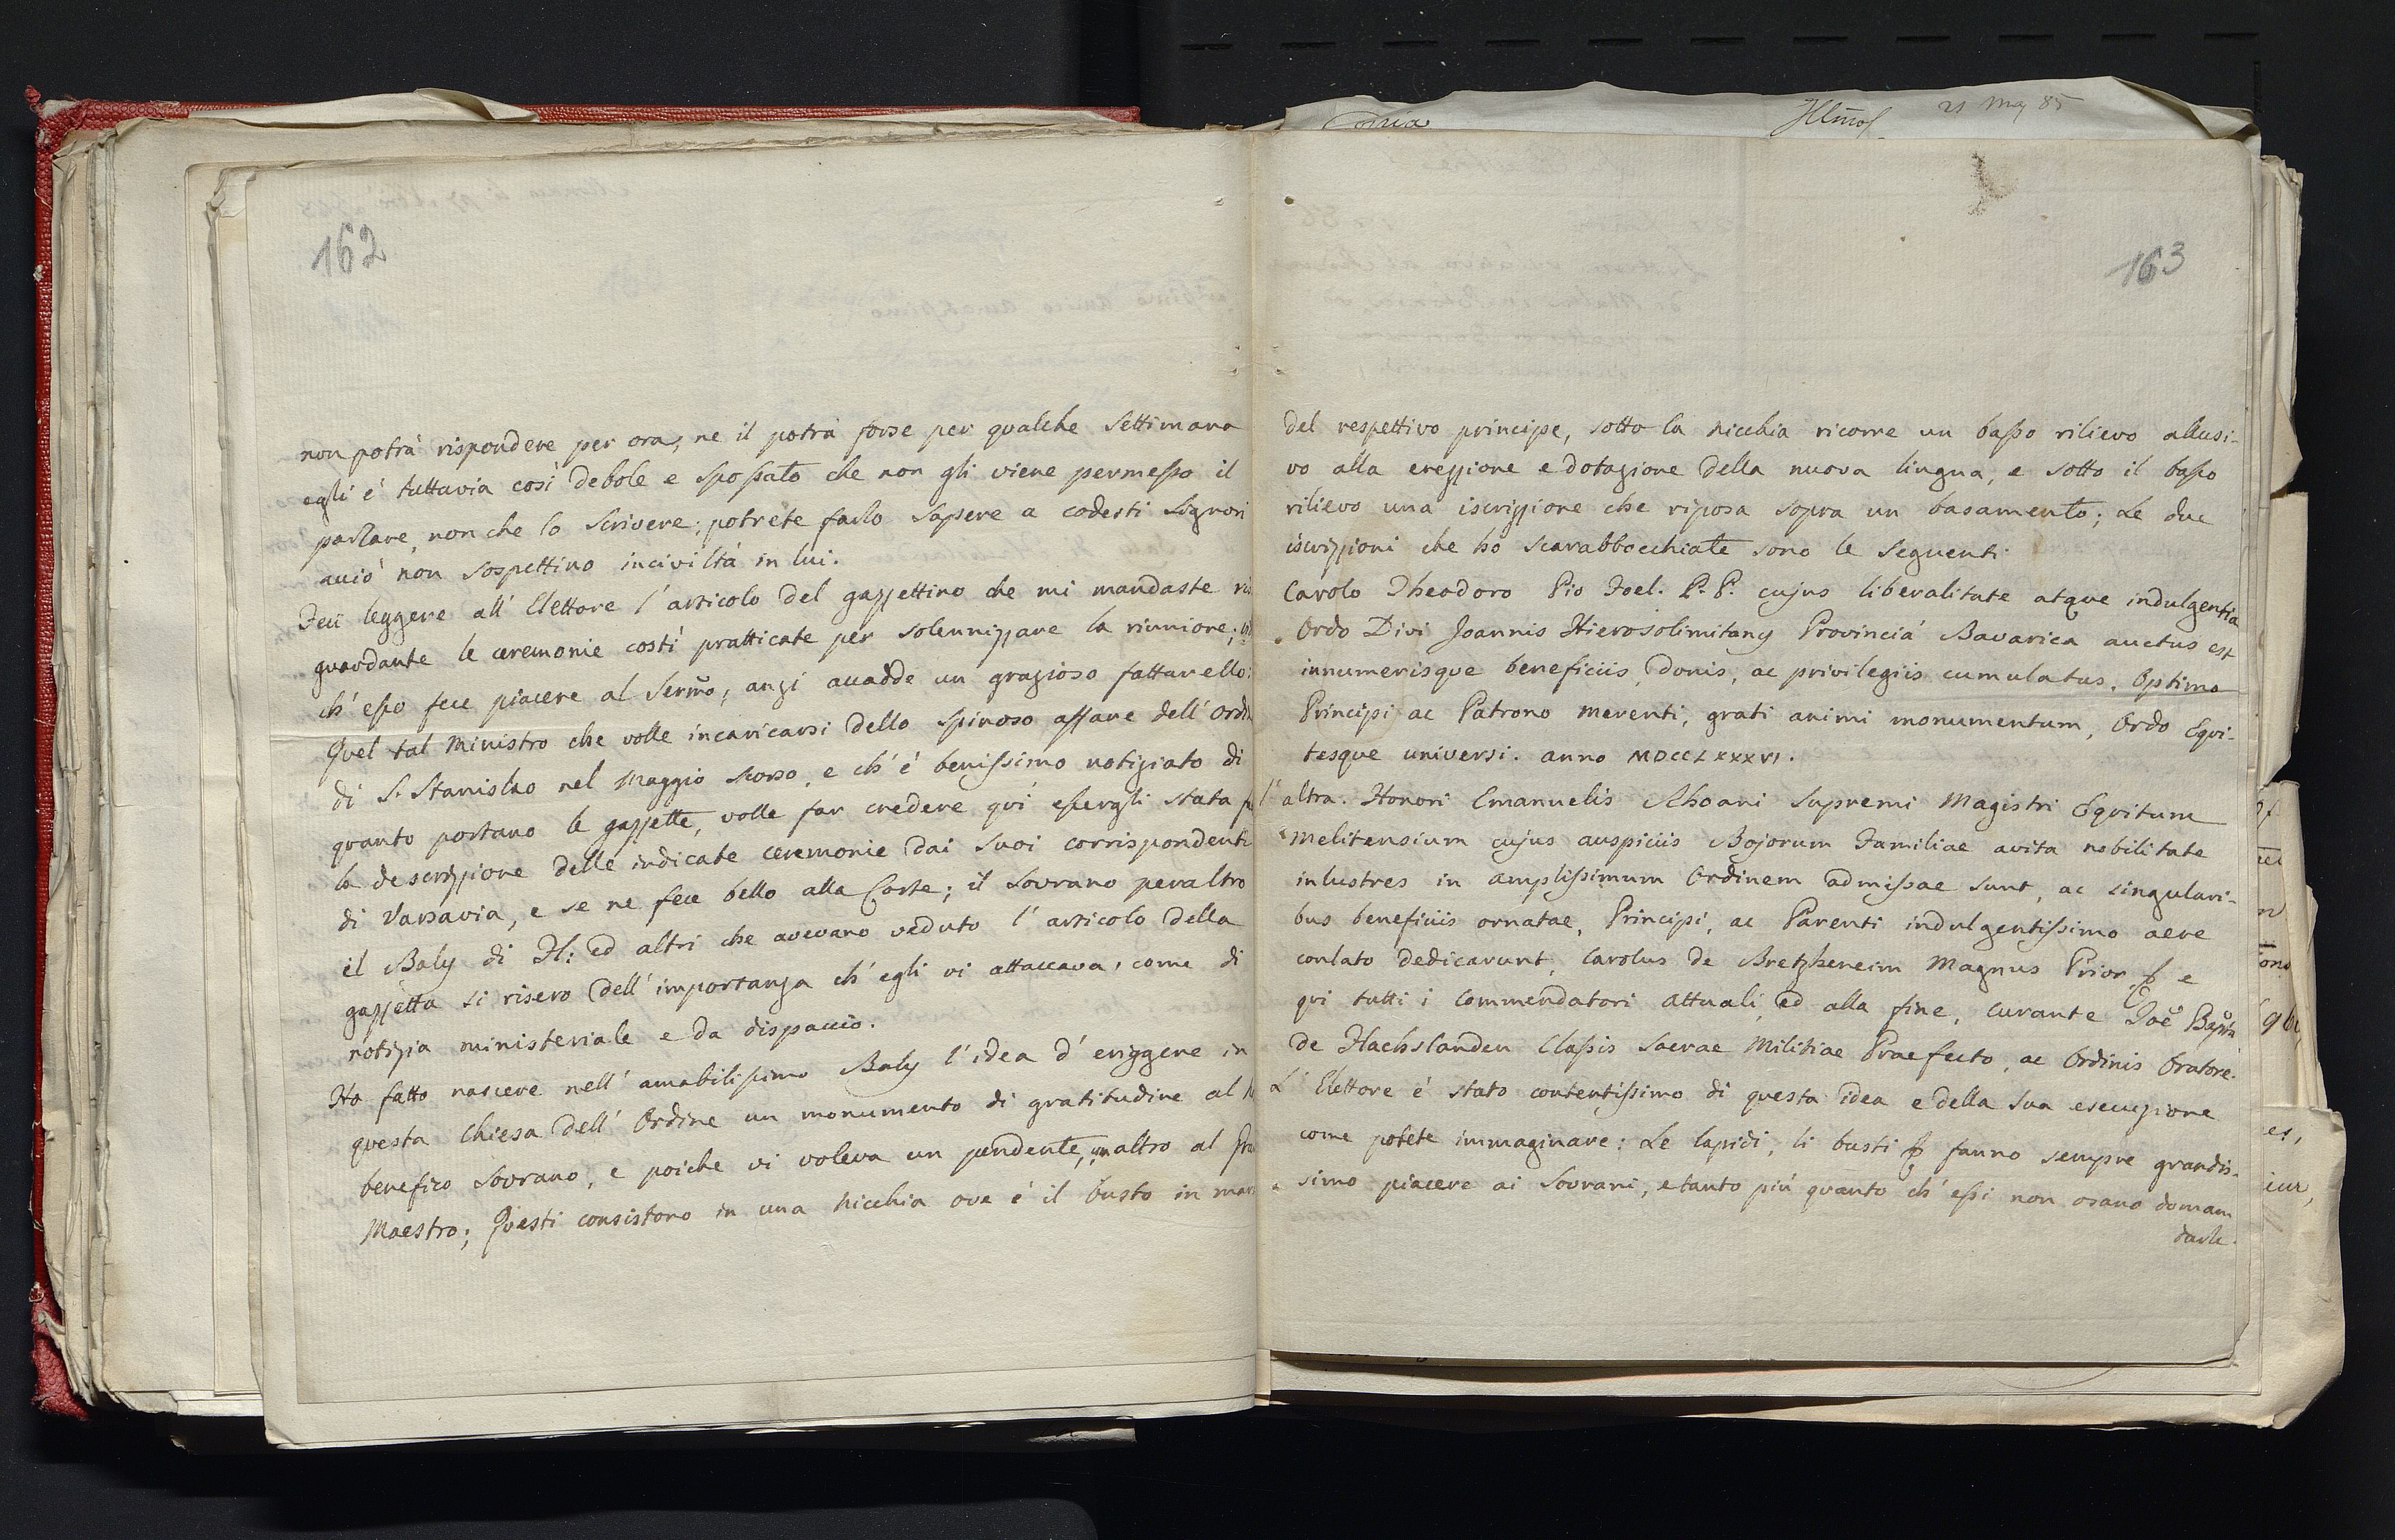 162
non potrà rispondere per ora, ne il potrà forse per qualche Settimana
egli é tuttavia così debole e spossato che non gli viene permesso il
parlare, non che lo Scrivere; potrete farlo sapere a codesti Signori
acciò non sospettino inciviltà in lui.
Feci leggere all' Elettore l'articolo del gazzettino che mi mandaste
guardante le ceremonie costì pratticate per solennizzare la riunione;
ch' esso fece piacere al Sermo, anzi accadde un grazioso fattarello:
Quel tal Ministro che volle incaricarsi dello spinoso affare dell'
di S. Stanislao nel Maggio scorso, e ch' é benissimo notiziato di
quanto portano le gazzette, volle far credere quì essergli stata
la descrizzione delle indicate ceremonie dai suoi corrispondenti
di Varsavia, e se ne fece bello alla Corte; il Sovrano peraltro
il Baly di H: ed altri che avevano veduto l' articolo della
gazzetta si risero dell' importanza ch' egli vi attaccava, come di
notizia ministeriale e da dispaccio.
Ho fatto nascere nell' amabilissimo Baly l'idea d' eriggere in
questa Chiesa dell' Ordine un monumento di gratitudine al
benefico Sovrano, e poiche vi voleva un pendente, un altro al
Maestro; Questi consistono in una nicchia ove é il busto in
Illmo
21 May 85
163
del respettivo principe, sotto la nicchia ricorre un basso rilievo allusi-
vo alla erezzione e dotazione della nuova lingua, e sotto il basso
rilievo una iscrizzione che riposa sopra un basamento; Le due
iscrizzioni che ho scarabbocchiate sono le Seguenti
Carolo Theodoro Pio Foel. P. P. cujus liberalitate atque indulgentia
Ordo Divi Joannis Hierosolimitany Provinciá Bavarica auctus est
innumerisque beneficiis, donis, ac privilegiis cumulatus. Optimo
Principi ac Patrono merenti, grati animi monumentum, Ordo Equi-
tesque universi. anno MDCCLXXXVI.
l' altra. Honori Emanuelis Rhoani Supremi Magistri Equitum
Melitensium cujus auspiciis Bojorum Familiae avita nobilitate
inlustres in amplissimum Ordinem admissae sunt, ac singulari-
bus beneficiis ornatae, Principi, ac Parenti indulgentissimo aere
conlato dedicarunt, Carolus de Bretzheneim Magnus Prior & e
qui tutti i Commendatori attuali, ed alla fine, curante Joẽ Bapta
de Flachslanden Classis Sacrae Militiae Praefecto, ac Ordinis Oratore.
L' Elettore é stato contentissimo di questa idea e della sua esecuzione
come potete immaginare: Le lapidi, li busti & fanno sempre grandis-
simo piacere ai Sovrani, e tanto più quanto ch' essi non osano doman
darle.